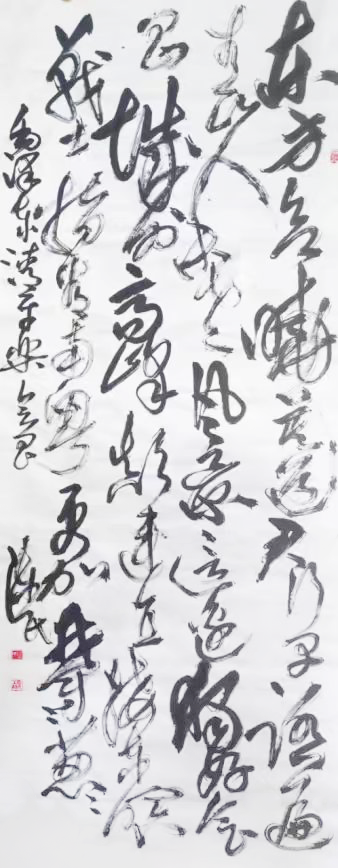 东方欲晓莫道君行早踏遍
青山人未老风景这边独好会
昌城外高峰颠连直接东溟
战士指看南粤更加郁郁葱葱
毛泽东清平乐会昌